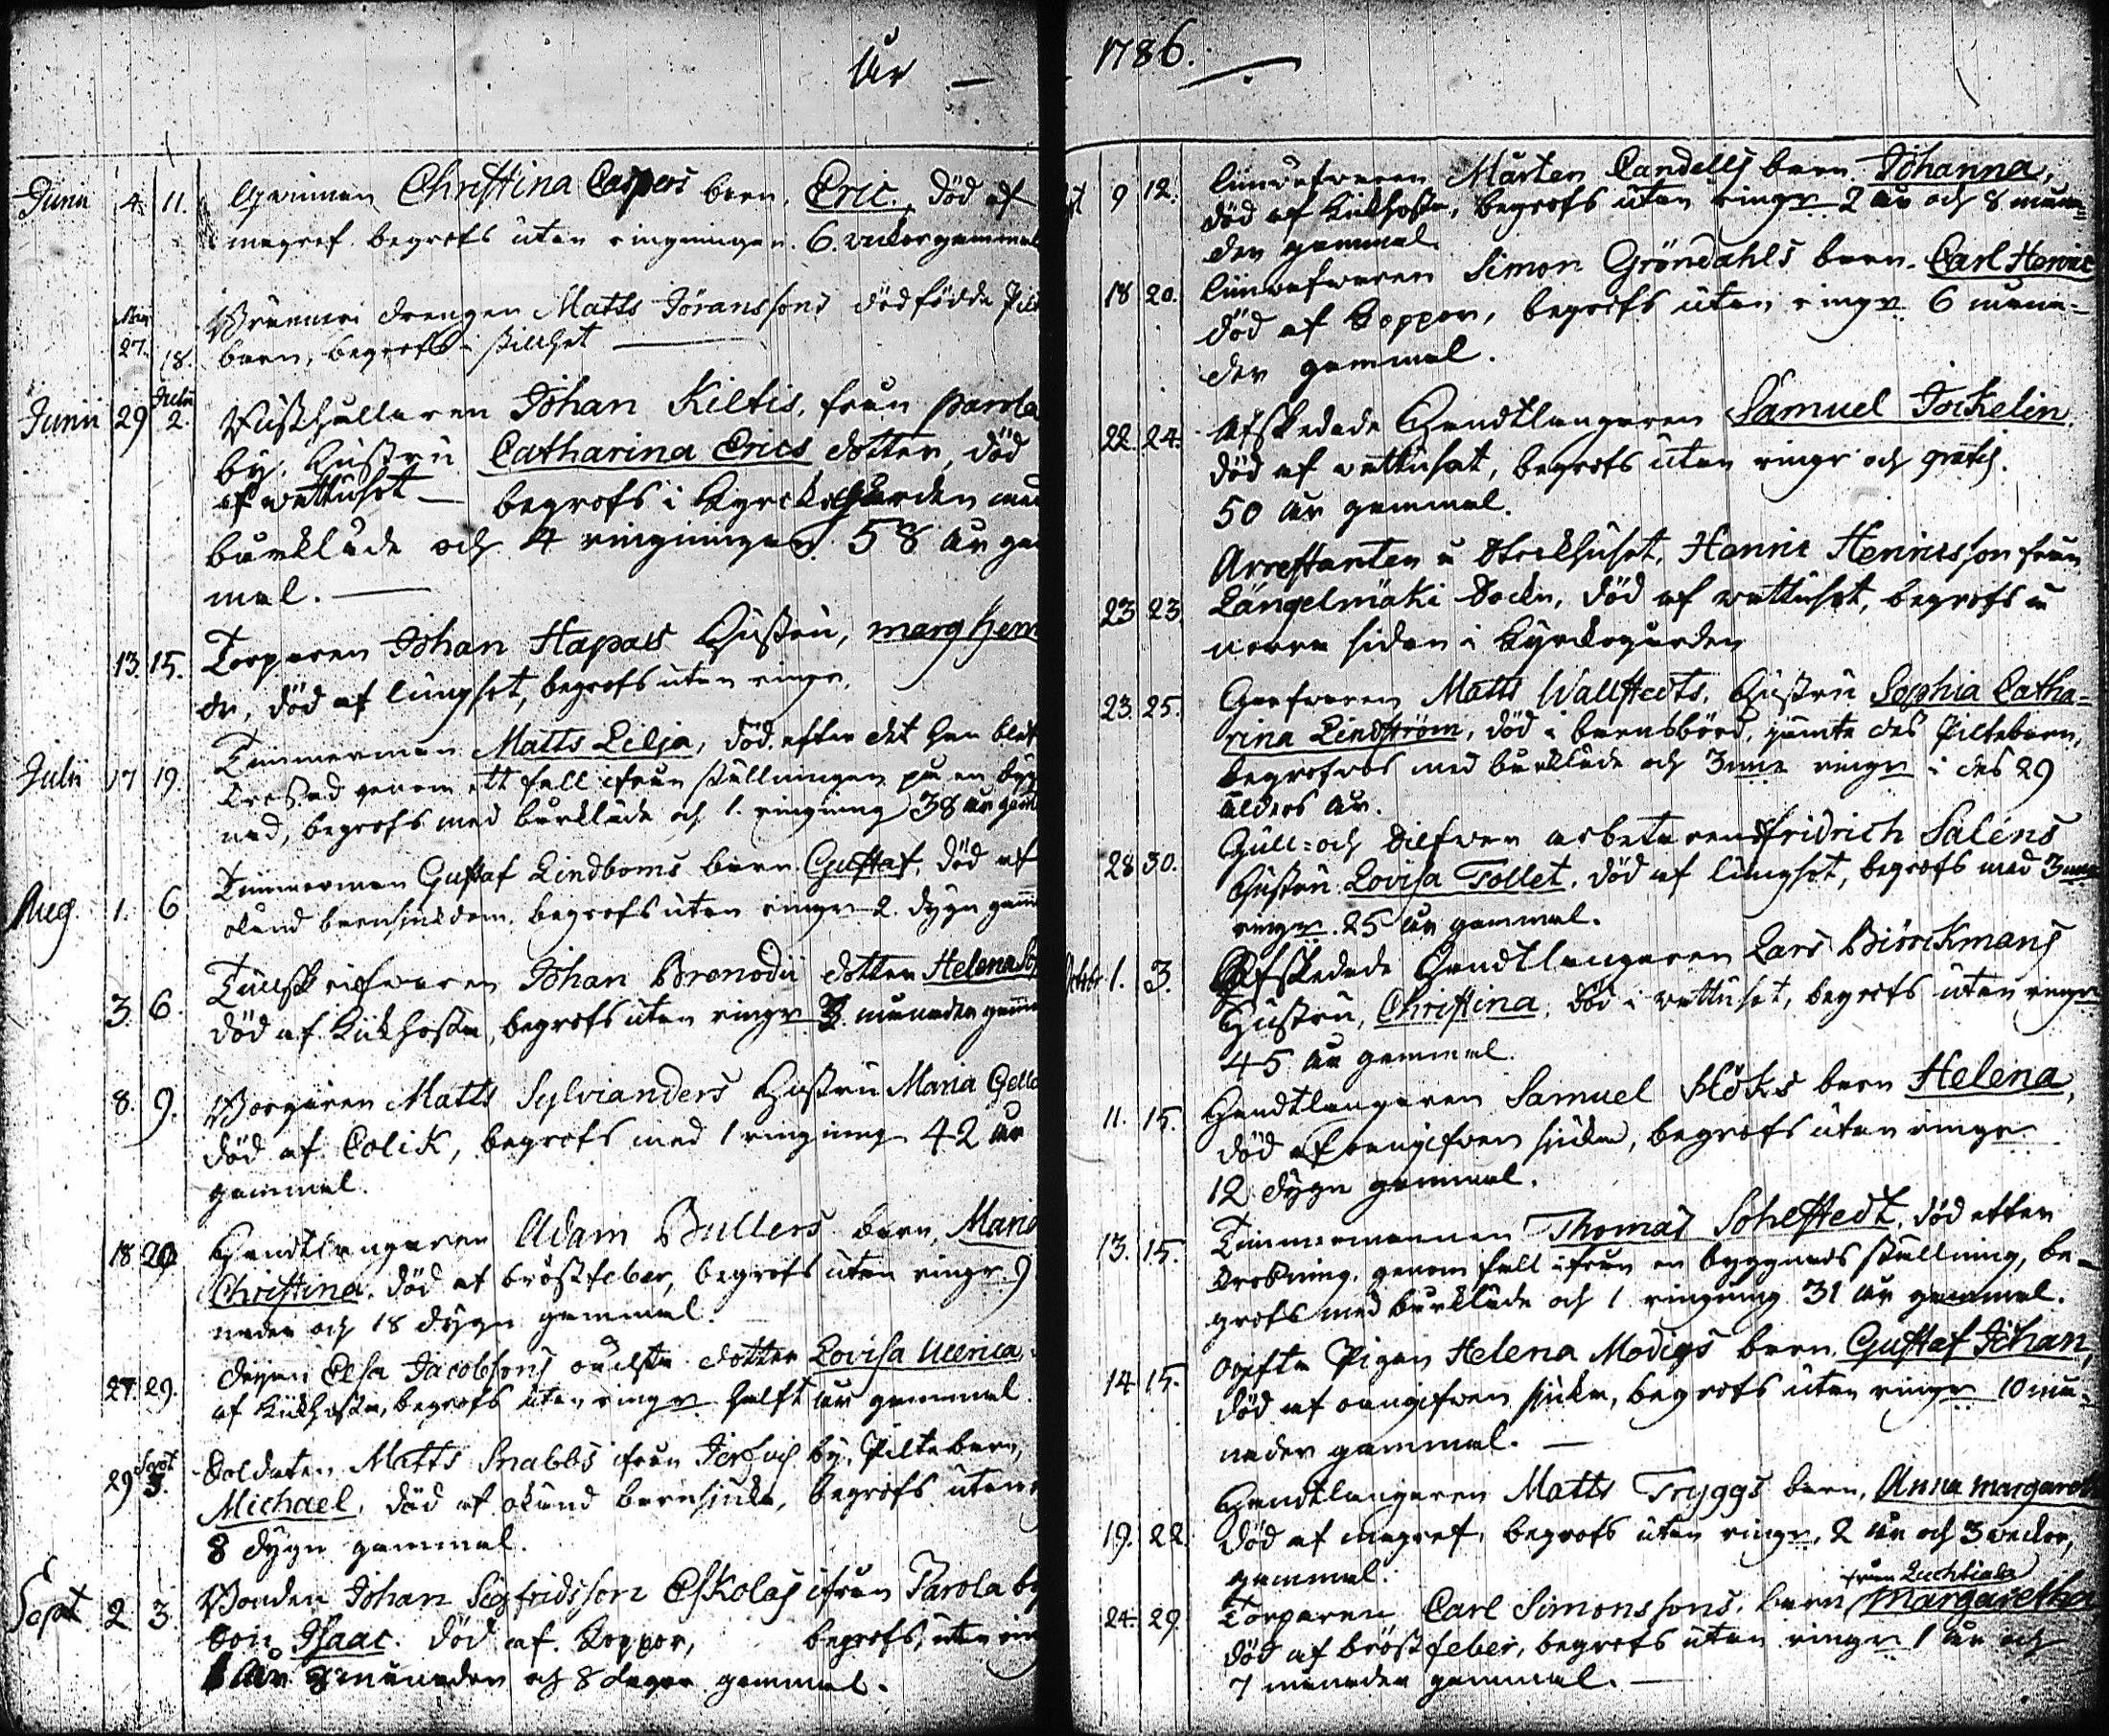 År — 1786.
Junii 4. 11. Christina Caspers barn, Eric, död af
begrofs utan ringningar. 6. veckor gammal
Maji 27. 18. drengen Matts Jöranssons dödfödda Pilte
barn, begrofs i stillhet —
Junii 29 Julii 2. Johan Kiltis, från Parola
by, Hustru Catharina Erics dotter, död
af vattusot — begrofs i Kyrckogården med
bårkläde och 4 ringningar. 58 år gam
mal. —
13. 15. Torparen Johan Hapais Hustru, Marg Henr
dr, död af lungsot, begrofs utan ringn.
Julii 17 19. Timmerman Matts Lilja, död efter det han blef
krossad genom ett fall ifrån ställningen på en byg
nad, begrofs med bårkläde och 1. ringning 38 år gam
Aug. 1. 6 Timmerman Gustaf Lindboms barn Gustaf, död af
okänd barnsjukdom, begrofs utan ringn 2. dygn gam
3. 6. Johan Bronodii dotter Helena
död af Kikhosta, begrofs utan ringn 3 månader gamma
8. 9. Borgaren Matts Sylvianders Hustru Maria Gello
död af Colik, begrofs med 1 ringning 42 år
gammal.
18 20 Handtlangaren Adam Bullers barn, Maria
Christina, död af bröstfeber, begrofs utan ringn. 9
nader och 18 dygn gammal.
27. 29. Elsa Jacobsons oäckta dotter Lovisa Ulrica,
af Kikhosta, begrofs utan ringn halft år gammal.
29 Sept 3. Soldaten Matts Snabbs ifrån by, Piltebarn,
Michael, död af okänd barnsjuka, begrofs utan
8 dygn gammal.
Sept 2 3 Bonden Johan Segfridsson Eskolas ifrån Parola by
Son Isaac. död af Koppor, begrofs, utan rin
1 år 8 månader och 8 dagar gammal.
9 12. Mårten Candells barn Johanna,
död af Kikhosta, begrofs utan ringn 2 år och 8 måna=
der gammal.
18 20. Simon Gröndahls barn, Carl Henric
död af Koppor, begrofs utan ringn 6 måna=
der gammal.
22. 24. Afskedade Handtlangaren Samuel Jockelin,
död af vattusot, begrofs utan ringn och gratis.
50 år gammal.
Arrestanten å Stockhuset, Henric Henricsson från
23 23. Längelmäki Sockn, död af vattusot, begrofs å
norra sidan i Kyrckogården
23. 25. Garfvaren Matts Wallstedts, Hustru Sophia Catha=
rina Lindström, död i barnsbörd, jämte des Piltebarn,
begrofvos med bårkläde och 3nne ringn i des 29
ålders år.
28 30. Gull= och Silfver arbetaren Fridrich Saléns
Hustru Lovisa Tollet, död af lungsot, begrofs med 3nne
ringn. 25 år gammal.
Octobr 1. 3. Afskedade Handtlangaren Lars Biörckmans
Hustru, Christina, död i vattusot, begrofs utan ringn
45 år gammal.
11. 15. Handtlangaren Samuel Höks barn Helena,
död af oangifven sjuka, begrofs utan ringn
12 dygn gammal.
13. 15. Timmermannen Thomas Sohlstedt, död efter
krossning, genom fall ifrån en byggnads ställning, be=
grofs med bårkläde och 1 ringning 31 år gammal.
14 15. ogifta Pigan Helena Modigs barn, Gustaf Johan,
död af oangifven sjuka, begrofs utan ringn 10 må=
nader gammal. —
Handtlangaren Matts Tryggs barn, Anna Margareta
19. 22 död af begrofs utan ringn, 2 år och 3 veckor,
gammal.
från Luchtiala
24. 29. Torparen Carl Simonssons, barn Margaretha
död af bröstfeber, begrofs utan ringn 1 år och
7 månader gammal. —